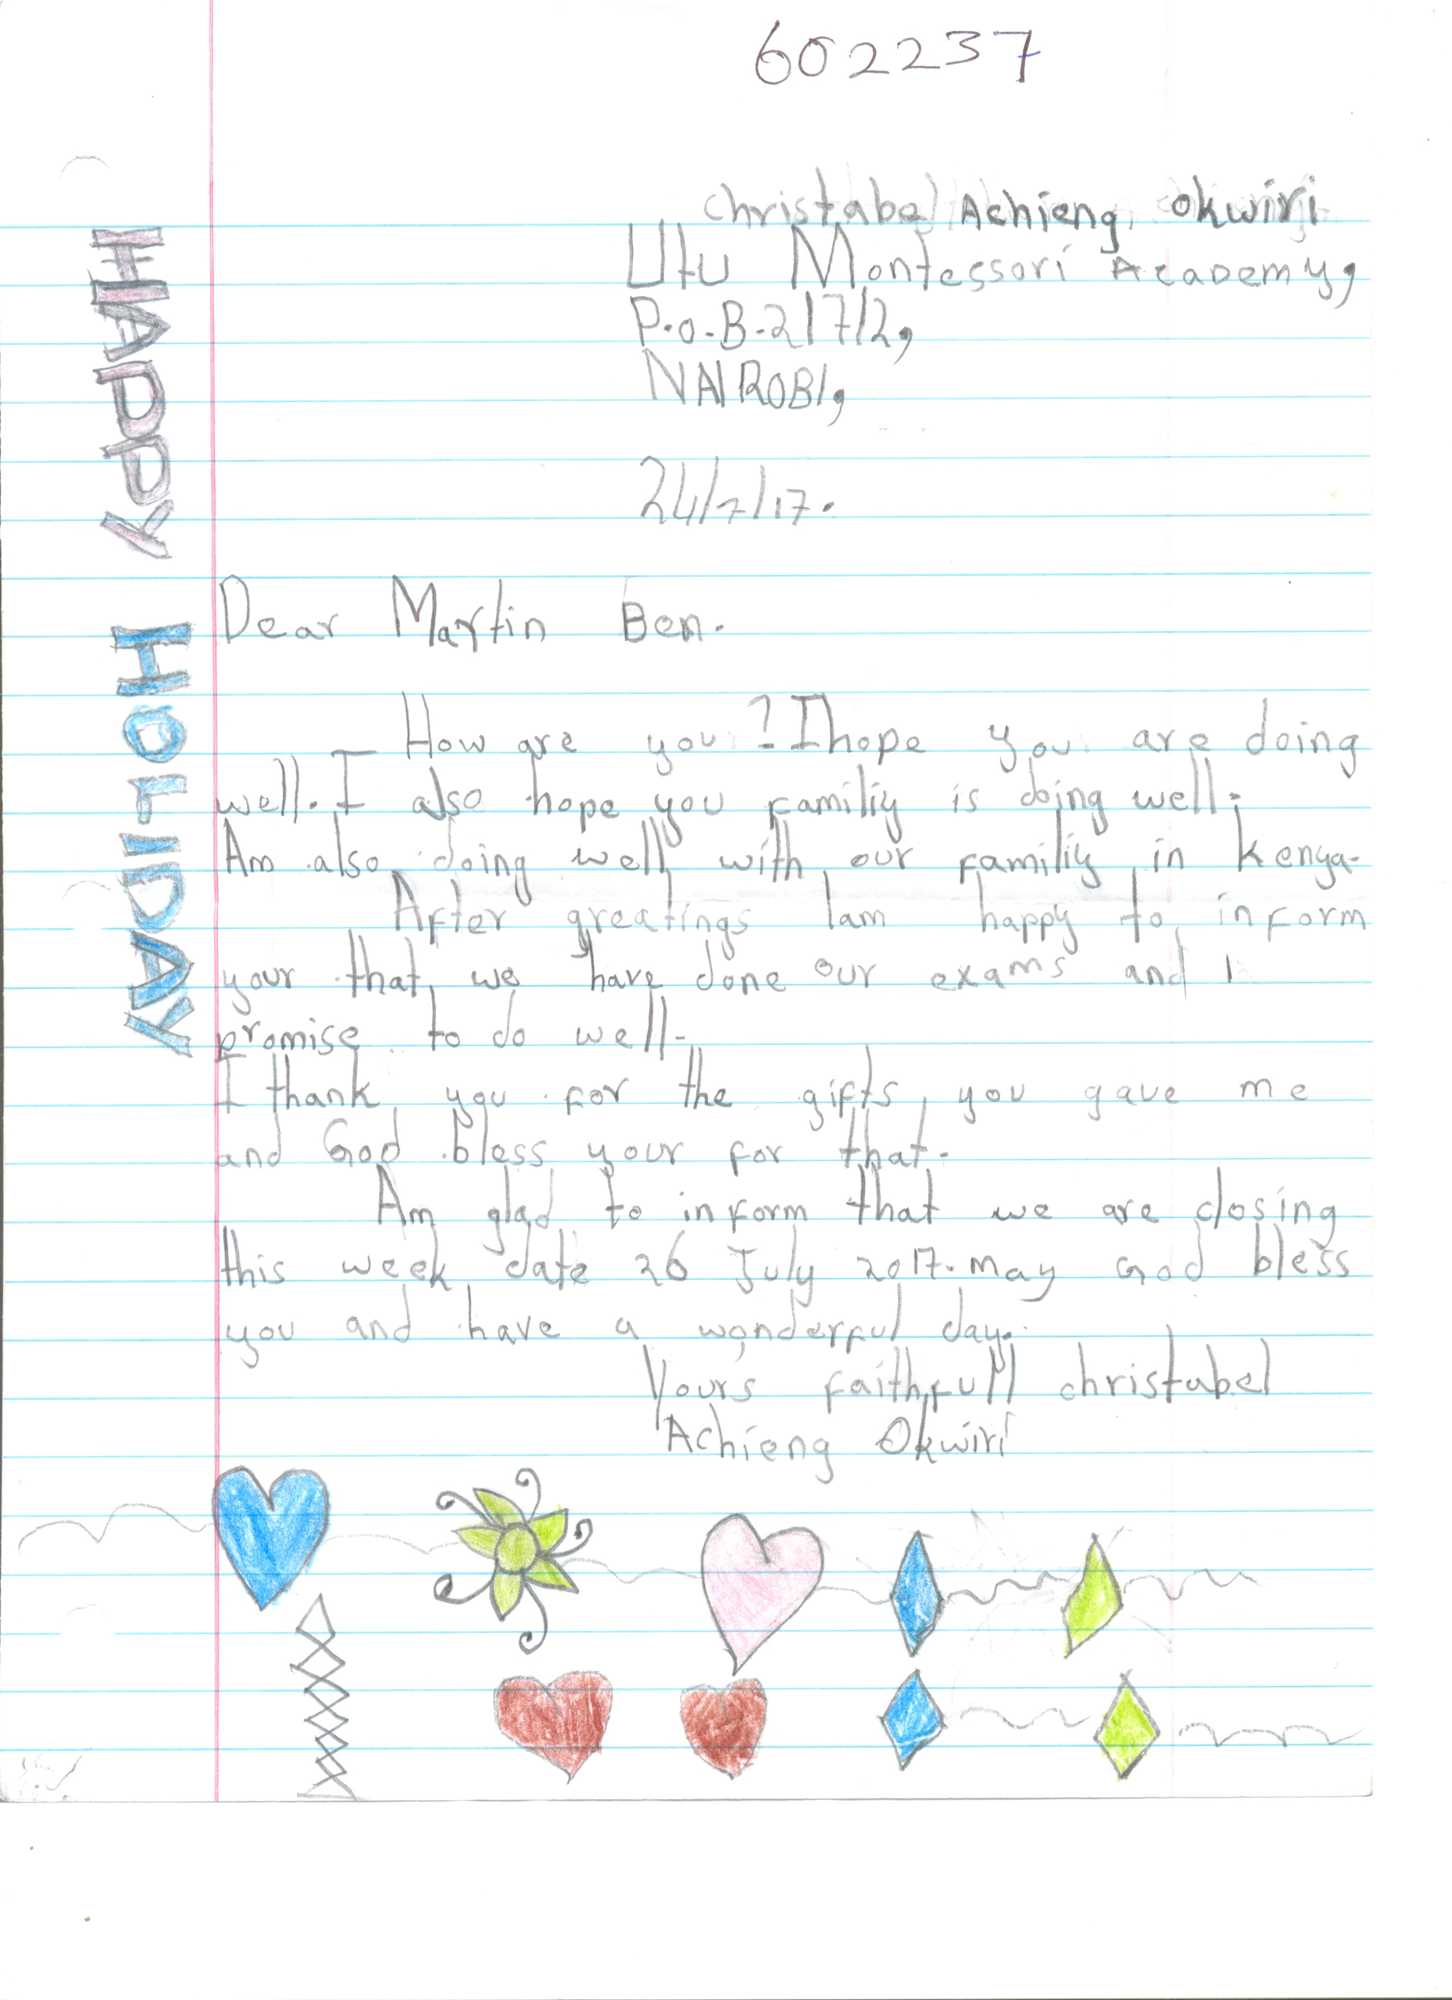 602237
Christabel Achieng Okwiri
Utu Montessori Academy,
P.o.B.21712,
NAIROBI,
24/7/17.
HAPPY HOLIDAY
Dear Martin Ben.
How are you? I hope you are doing
well. I also hope you familiy is doing well.
Am also doing well with our familiy in kenya.
After greatings Iam happy to inform
your that we have done our exams and I
promise to do well.
I thank you for the gifts you gave me
and God bless your for that.
Am glad to inform that we are closing
this week date 26 July 2017. may God bless
you and have a wonderful day.
Yours faithfull christabel
Achieng Okwiri